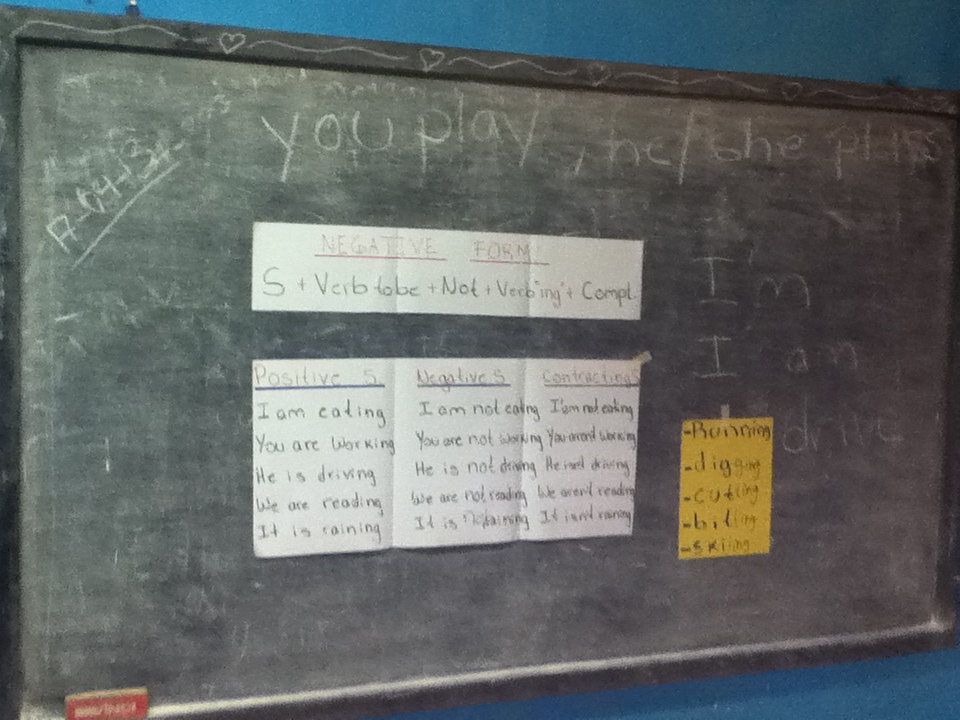 you play, he/she
NEGATIVE FORM
S + Verb tobe + Not + Verb"ing" + Compl.
I'm
I am
drive
Positive S Negative S Contracting S
I am eating I am not eating I'am not eating
You are working You are not working You aren't working
He is driving He is not driving He isn't driving
We are reading We are not reading We aren't reading
It is raining It is Not raining It isn't raining
-Running
-digging
-cutting
-biting
-skiing